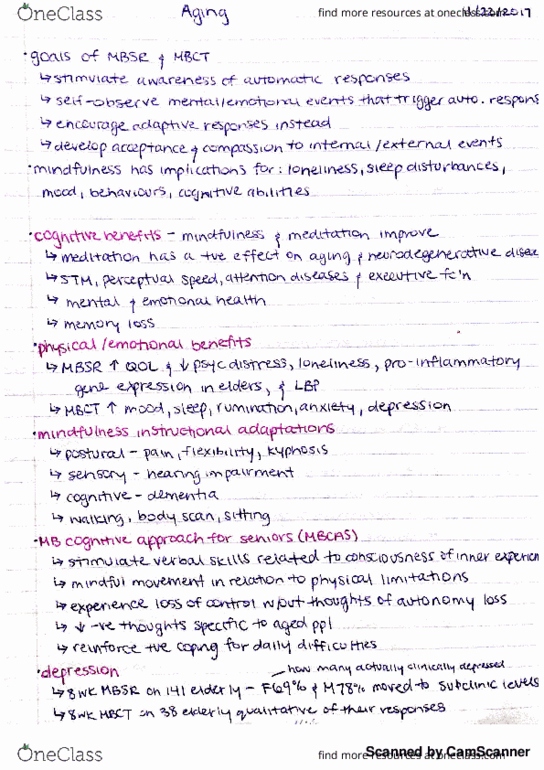 OneClass
Aging
find more resources at oneclass.com
11/22/2017
·goals of MBSR & MBCT
↳stimulate awareness of automatic responses
↳self-observe mental/emotional events that trigger auto. respons
↳encourage adaptive responses instead
↳develop acceptance & compassion to internal/external events
·mindfulness has implications for: loneliness, sleep disturbances,
mood, behaviours, cognitive abilities
·cognitive benefits - mindfulness & meditation improve
↳meditation has a +ve effect on aging & neurodegenerative diseas
↳STM, perceptual speed, attention diseases & executive fc'n
↳mental & emotional health
↳memory loss
·physical/emotional benefits
↳MBSR ↑ QOL & ↓ psyc distress, loneliness, pro-inflammatory
gene expression in elders, & LBP
↳MBCT ↑ mood, sleep, rumination, anxiety, depression
·mindfulness instructional adaptations
↳postural - pain, flexibility, kyphosis
↳sensory - hearing impairment
↳cognitive - dementia
↳walking, body scan, sitting
·MB cognitive approach for seniors (MBCAS)
↳stimulate verbal skills related to consciousness of inner experien
↳mindful movement in relation to physical limitations
↳experience loss of control w/out thoughts of autonomy loss
↳↓ -ve thoughts specific to aged ppl
↳reinforce +ve coping for daily difficulties
·depression
how many actually clinically depressed
↳8wk MBSR on 141 elderly - F69% & M78% moved to subclinic levels
↳8wk MBCT on 38 elderly qualitative of their responses
OneClass
find more resources at oneclass.com
Scanned by CamScanner